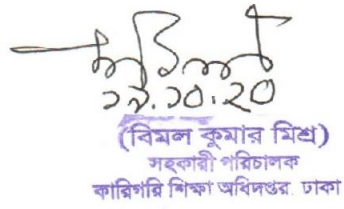 ১৯.১০.২০
(বিমল কুমার মিশ্র)
সহকারী পরিচালক
কারিগরি শিক্ষা অধিদপ্তর, ঢাকা